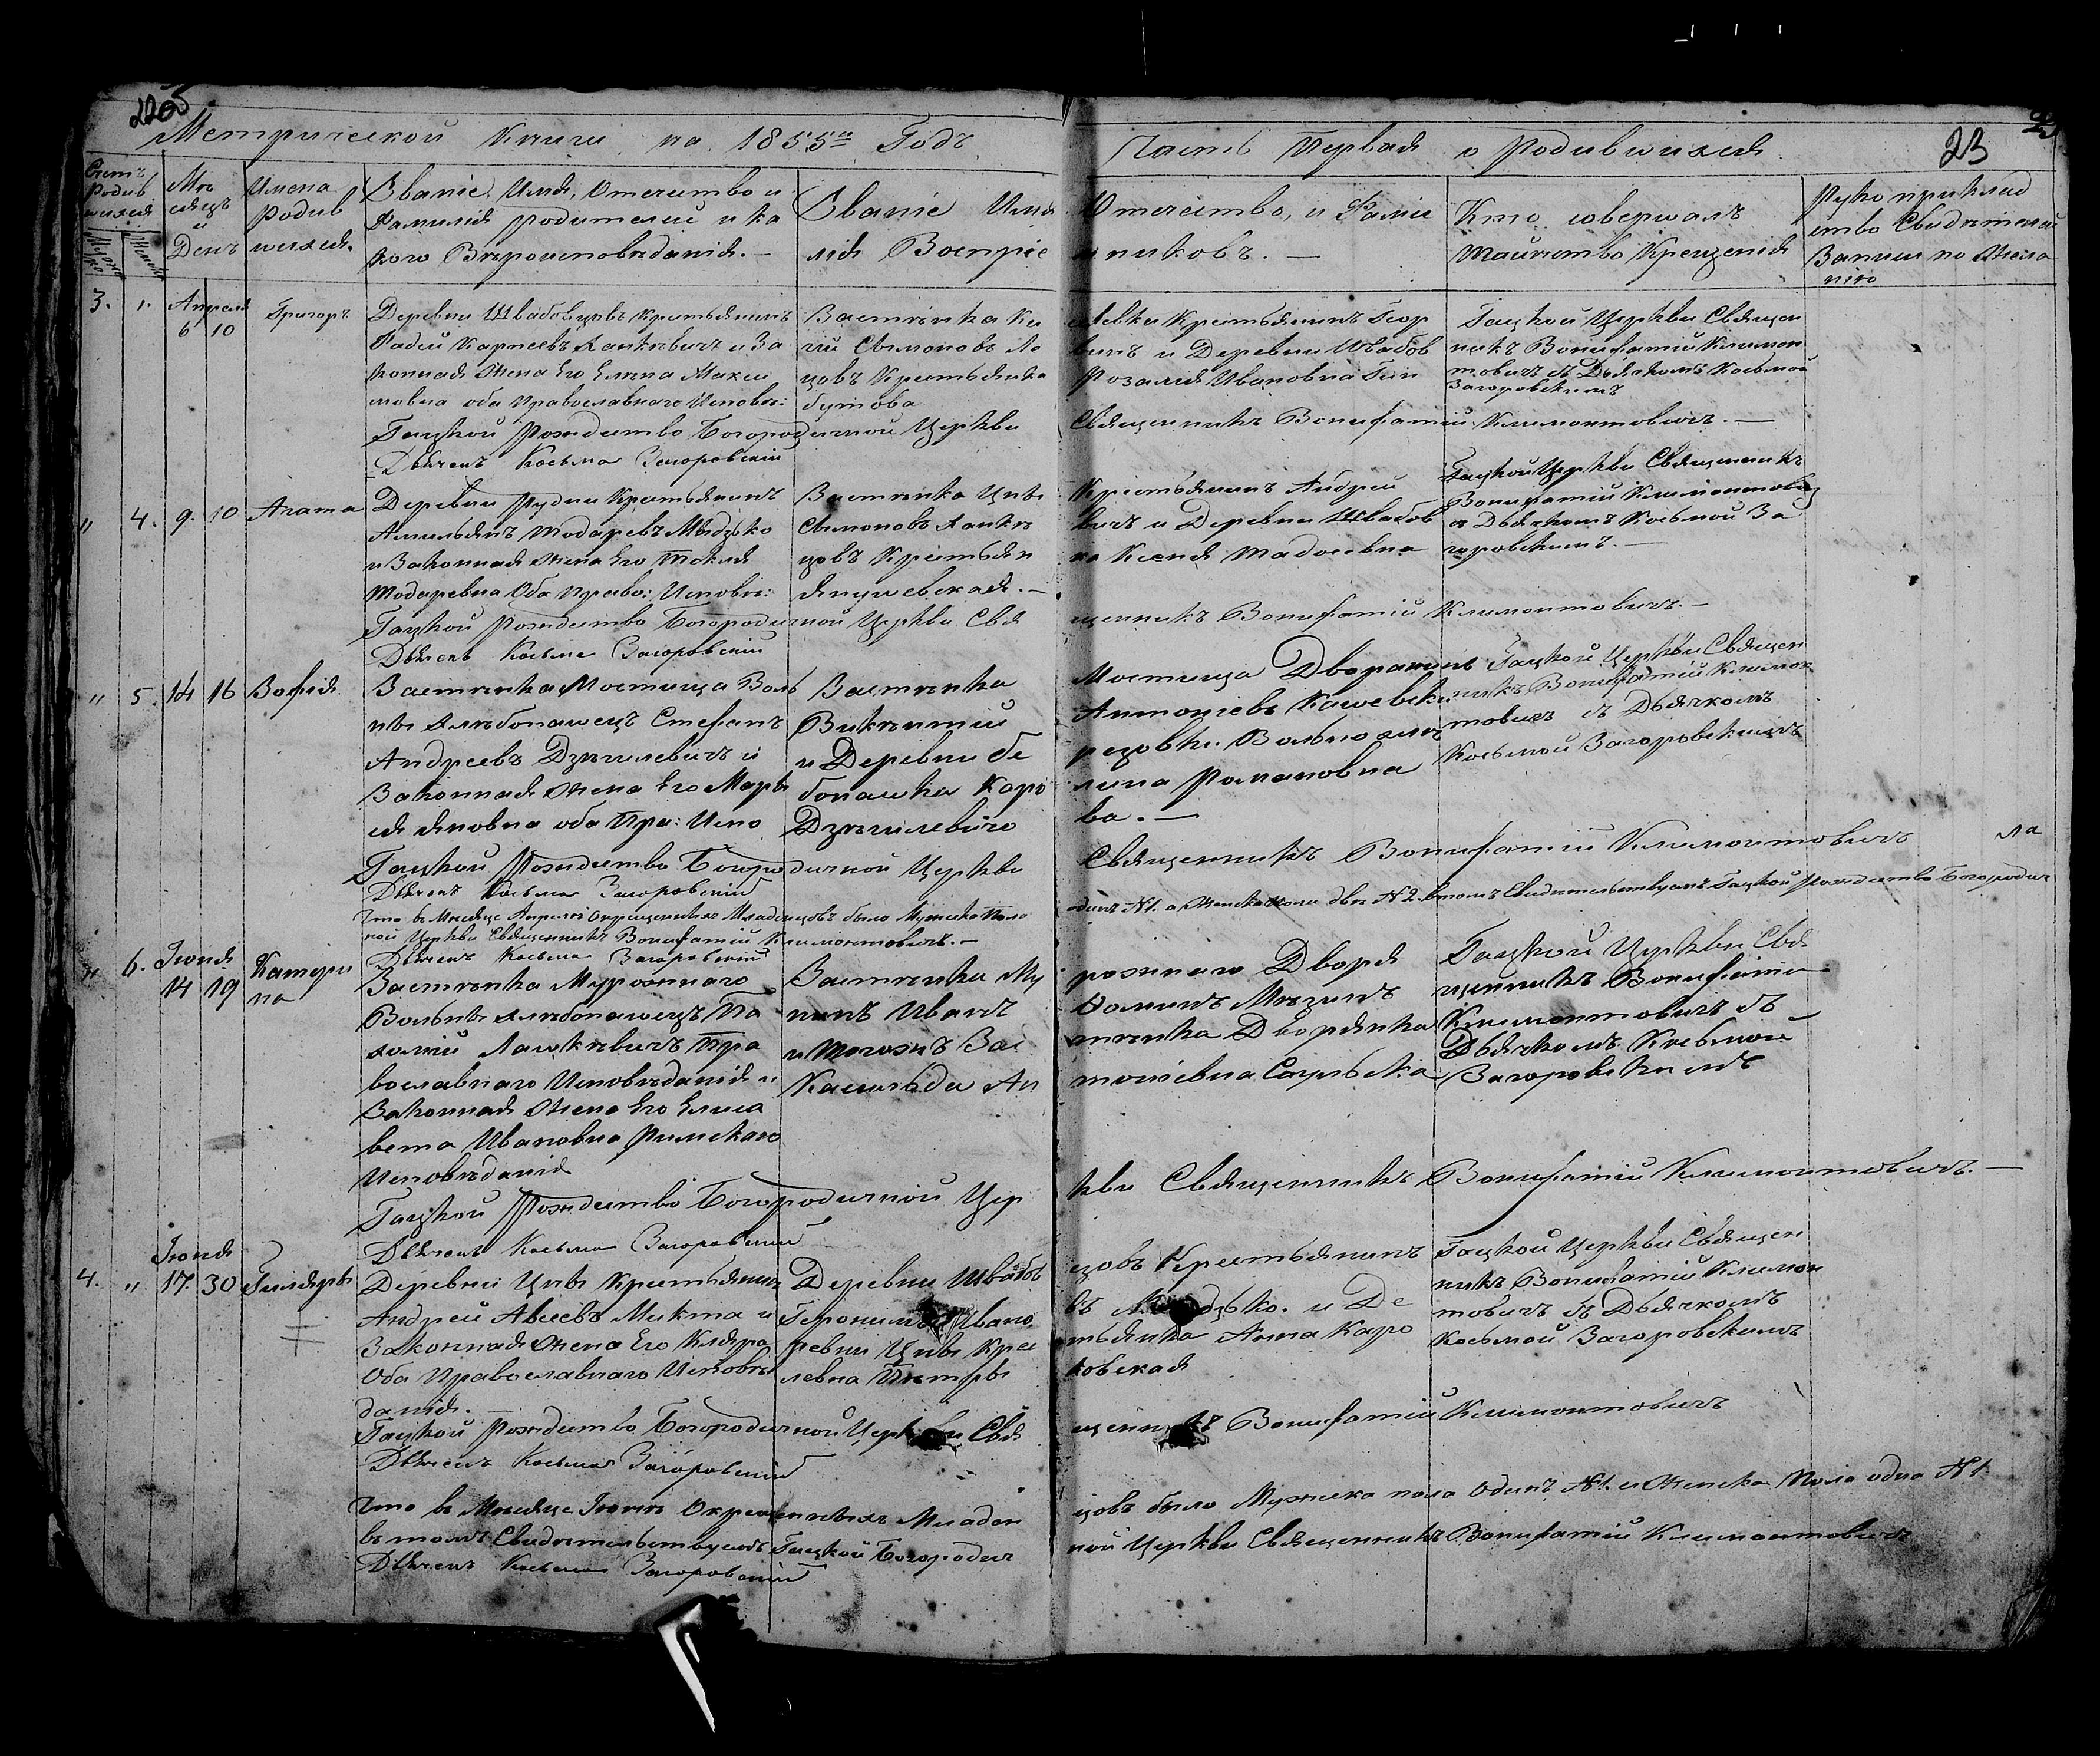 Метрической Книги на 1855й Годъ
Часть Первая о Родившихся
23
Счетъ Родившихся
Мѣсяцъ и День
Имена Родившихся
Званіе, Имя, Отечество и
Фамилія родителей и ка
кого Вѣроисповѣданія. —
Званіе Имя
лія Воспріе
Отечество, и Фами
мниковъ. —
Кто совершалъ
Таинство Крещенія
Рукоприклад
ство Свидѣтелей
Записи по Жела
нію
3. 1. Апреля
6 10
Григоръ
Деревни Швабовцовъ Крестьянинъ
Фадей Карнеевъ Ханкевичъ и За
конная Жена Его Елена Макси
мовна оба Православнаго Исповѣ:
Застѣнка Ки
гій Симоновъ Ле
цовъ Крестьянка
бутова
севки Крестьянинъ Геор
винъ и Деревни Швабов
Розалія Ивановна Гин
Гацкой Церкви Священ
никъ Вонифатій Климон
товичъ съ Дьячкомъ Косьмой
Загоровскимъ
Гацкой Рождество Богородичной Церкви
Священникъ Вонифатій Климонтовичъ. —
Дьячекъ Косьма Загоровскій
" 4. 9. 10 Агата
Деревни Рудни Крестьянинъ
Амильянъ Тодаревъ Мындзько
и Законная Жена Его Текля
Тодаревна Оба Право: Исповѣ:
Застѣнка Цнѣ
Симоновъ Ханке
цовъ Крестьян
Янушевская. —
Крестьянинъ Андрей
вичъ и Деревни Швабов
ка Ксенія Тадосевна
Гацкой Церкви Священникъ
Вонифатій Климонтовичъ
съ Дьячкомъ Косьмой За
горовскимъ. —
Гацкой Рождество Богородичной Церкви Свя
щенникъ Вонифатій Климонтовичъ. —
Дьячекъ Косьма Загоровскій
" 5. 14 16 Зофія
Застѣнка Мостища Воль
ны хлѣбопашецъ Стефанъ
Андреевъ Дзѣшлевичъ и
Законная Жена Его Марь
ся Яновна оба Пра: Испо
Застѣнка
Викентій
и Деревни Бе
бопашка Каро
Дзѣшлевичо
Мостища Дворанинъ
Антоніевъ Кашевски
резовки Вольно хлѣ
лина Романовна
ва. —
Гацкой Церкви Священ
никъ Вонифатій Климон
товичъ съ Дьячкомъ
Косьмой Загоровскимъ
Гацкой Рождество Богородичной Церкви
Священникъ Вонифатій Климонтовичъ
Дьячекъ Косьма Загоровскій
ла
Что въ Месяце Апреле Окрещенныхъ Младенцовъ было Мужеска Пола
одинъ №1. а Женска Пола двѣ №2. въ томъ Свидѣтельствуемъ Гацкой Рождество Богородич
ной Церкви Священникъ Вонифатій Климонтовичъ. —
Дьячекъ Косьма Загоровскій
" 6. Іюня
14 19
Катери
на
Застѣнка Мурожнаго
Вольны хлѣбопашецъ Па
хомій Лашкевичъ Пра
вославнаго Исповѣданія и
Законная Жена Его Елиса
вета Ивановна Римскаго
Исповѣданія
Застѣнка Му
нинъ Иванъ
и тогожъ Зас
Касильда Ан
рожнаго Дворя
тѣнка Дворянка
тоніевна Согульска
Гацкой Церкви Свя
щенникъ Вонифати
Климонтовичъ съ
Дьячкомъ Косьмой
Загоровскимъ
Гацкой Рождество Богородичной Цер
кви Священникъ Вонифатій Климонтовичъ. —
Дьячекъ Косьма Загоровскій
4. " Іюня
17. 30
Гиляры
Деревни Цны Крестьянинъ
Андрей Авсеевъ Микта и
Законная Жена Его Клара
Оба Православнаго Исповѣ
данія. —
Деревни Швабов
Геронимъ Ивано
ревни Цны Крес
левна Петры
цовъ Крестьянинъ
въ и Де
тьянка Анна Каро
ковская
Гацкой Церкви Священ
никъ Вонифатій Климон
товичъ съ Дьячкомъ
Косьмой Загоровскимъ
Гацкой Рождество Богородичной Церкви Свя
щенникъ Вонифатій Климонтовичъ
Дьячекъ Косьма Загоровскій
Что в Месяце Іюнѣ Окрещенныхъ Младен
цовъ было Мужеска пола Одинъ №1. и Женска Пола одна №1.
въ томъ Свидѣтельствуемъ Гацкой Богородич
ной Церкви Священникъ Вонифатій Климонтовичъ
Дьячекъ Косьма Загоровскій